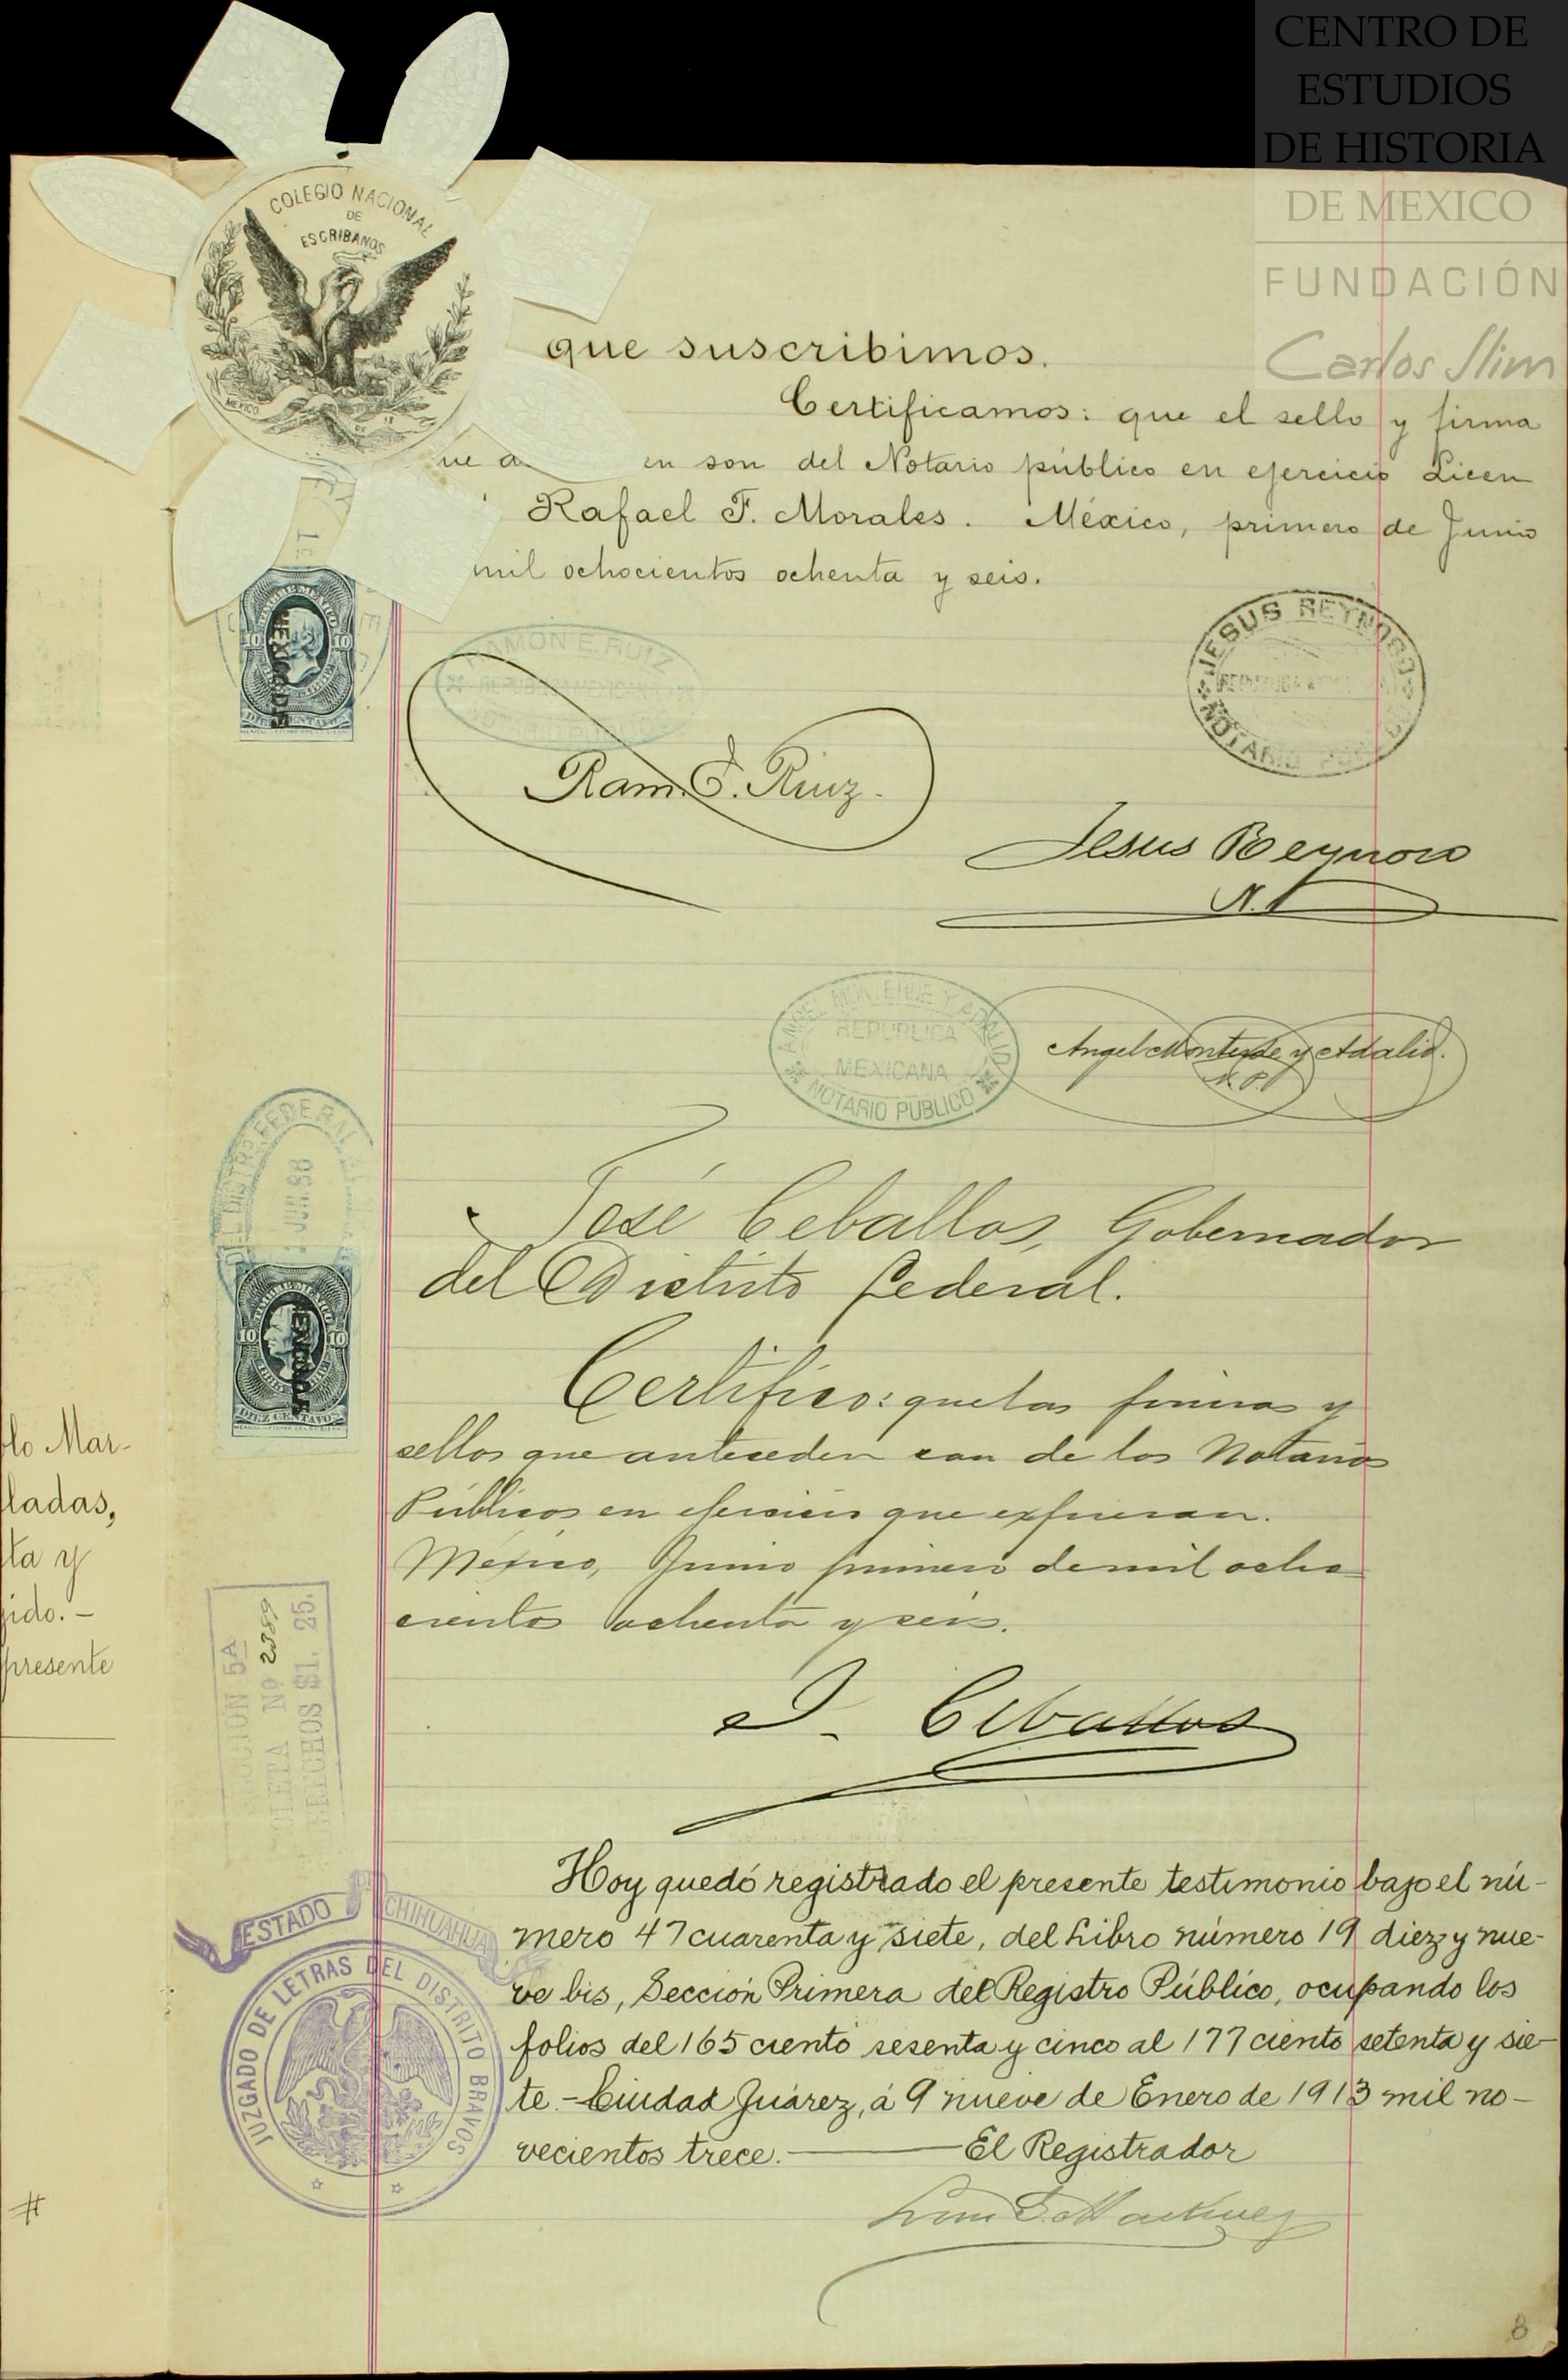 CENTRO DE
ESTUDIOS
DE HISTORIA
DE MEXICO
FUNDACIÓN
Carlos Slim
COLEGIO NACIONAL
DE
ESCRIBANOS
MEXICO
que suscribimos.
Certificamos: que el sello y firma
ue a en son del Notario público en ejercicio Licen
Rafael F. Morales. México, primero de Junio
mil ochocientos ochenta y seis.
RAMON E. RUIZ
JESUS REYNOSO
NOTARIO
10 10
DIEZ CENTAVOS
Ram. E. Ruiz.
Jesus Reynoso
N.
ANGEL MONTERDE Y ADALID
REPUBLICA
MEXICANA
NOTARIO PUBLICO
Angel Monterde y Adalid.
N. P.
DISTRO FEDERAL
JUN. 86
José Ceballos, Gobernador
del Distrito federal.
10 10
DIEZ CENTAVOS
Certifico: que las firmas y
sellos que anteceden son de los Notarios
Públicos en ejercicio que expresan.
México, Junio primero de mil ocho
cientos ochenta y seis.
J. Ceballos
lo Mar-
ladas,
ta y
ido.-
presente
CION 5A
LETA No 2389
ERECHOS $1. 25.
Hoy quedó registrado el presente testimonio bajo el nú-
mero 47 cuarenta y siete, del Libro número 19 diez y nue-
ve bis, Sección Primera del Registro Público, ocupando los
folios del 165 ciento sesenta y cinco al 177 ciento setenta y sie-
te.-Ciudad Juárez, á 9 nueve de Enero de 1913 mil no-
vecientos trece.- El Registrador
ESTADO DE CHIHUAHUA
JUZGADO DE LETRAS DEL DISTRITO BRAVOS
Martinez
#
8